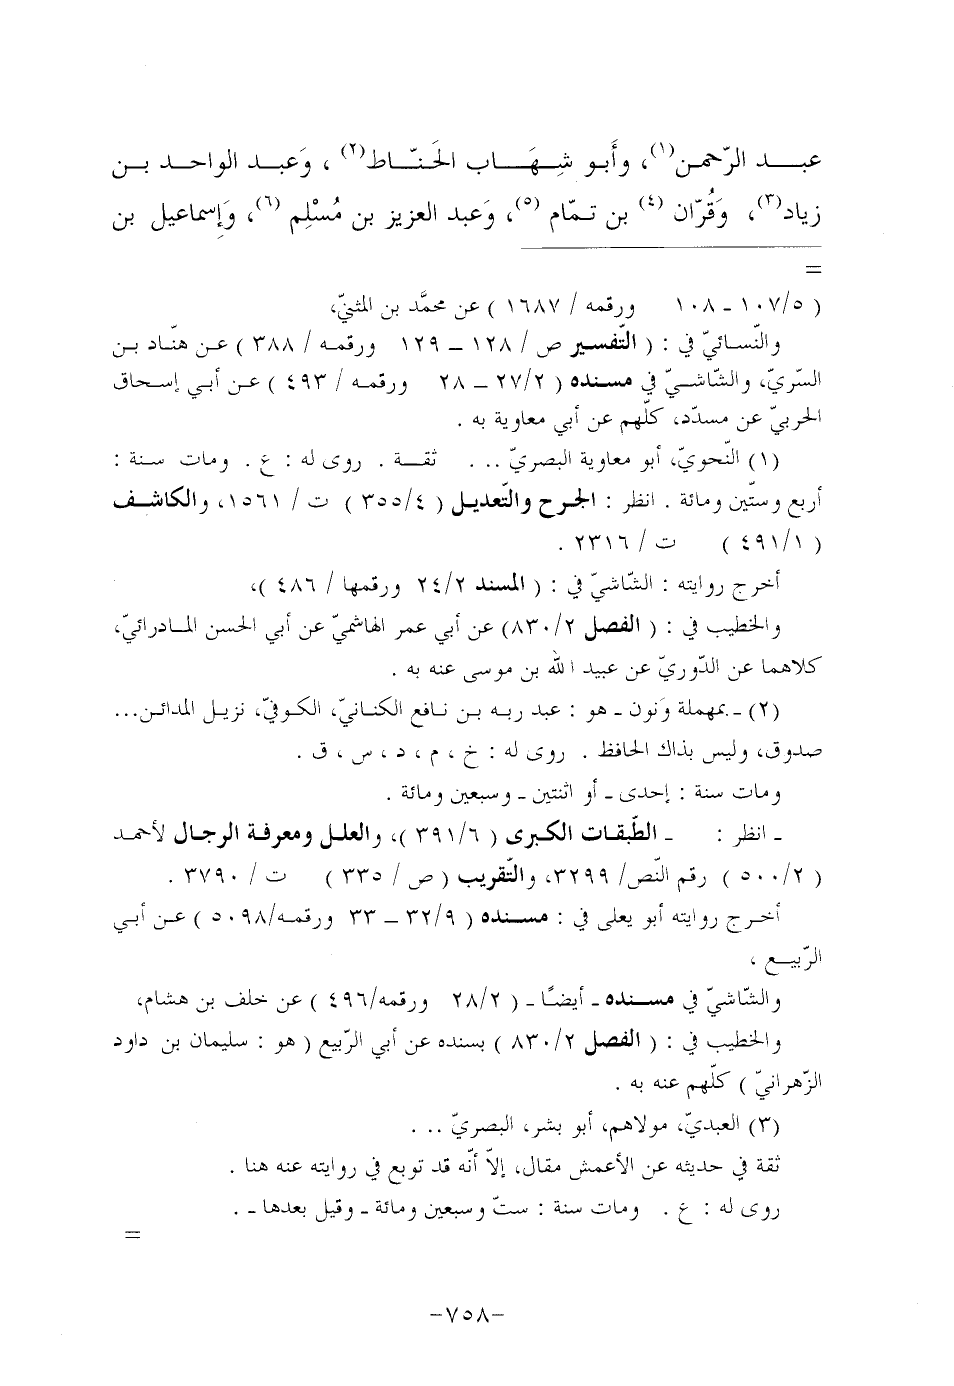 عبد الرّحمن(١)، وأَبو شِهَاب الحَنّاط(٢) ، وَعبد الواحد بن
زياد(٣)، وَقُرّان (٤) بن تمّام (٥)، وَعبد العزيز بن مُسْلِم (٦)، وَإسماعيل بن
=
( ٥/ ١٠٧ - ١٠٨ ورقمه / ١٦٨٧ ) عن محمَّد بن المثنيّ،
والنّسائيّ في : ( التّفسير ص / ١٢٨ – ١٢٩ ورقمه / ٣٨٨ ) عن هنّاد بن
السّريّ، والشّاشيّ في مسنده ( ٢/ ٢٧ – ٢٨ ورقمه / ٤٩٣ ) عن أبي إسحاق
الحربيّ عن مسدّد، كلّهم عن أبي معاوية به .
(١) النّحويّ، أبو معاوية البصريّ .. . ثقة . روى له : ع . ومات سنة :
أربع وستّين ومائة . انظر : الجرح والتّعديل ( ٤/ ٣٥٥ ) ت / ١٥٦١، والكاشف
( ١/ ٤٩١ ) ت / ٢٣١٦ .
أخرج روايته : الشّاشيّ في : ( المسند ٢/ ٢٤ ورقمها / ٤٨٦ )،
والخطيب في : ( الفصل ٢/ ٨٣٠) عن أبي عمر الهاشميّ عن أبي الحسن المادرائيّ،
كلاهما عن الدّوريّ عن عبيد الله بن موسى عنه به .
(٢) - بمهملة وَنون - هو : عبد ربه بن نافع الكنانيّ، الكوفيّ، نزيل المدائن...
صدوق، وليس بذاك الحافظ . روى له : خ ، م ، د ، س ، ق .
ومات سنة : إحدى - أو اثنتين - وسبعين ومائة .
- انظر : - الطّبقات الكبرى ( ٦/ ٣٩١ )، والعلل ومعرفة الرجال لأحمد
( ٢/ ٥٠٠ ) رقم النّص/ ٣٢٩٩، والتّقريب ( ص / ٣٣٥ ) ت / ٣٧٩٠ .
أخرج روايته أبو يعلى في : مسنده ( ٩/ ٣٢ – ٣٣ ورقمه/ ٥٠٩٨ ) عن أبي
الرّبيع ،
والشّاشيّ في مسنده - أيضًا - ( ٢/ ٢٨ ورقمه/ ٤٩٦ ) عن خلف بن هشام،
والخطيب في : ( الفصل ٢/ ٨٣٠ ) بسنده عن أبي الرّبيع ( هو : سليمان بن داود
الزّهرانيّ ) كلّهم عنه به .
(٣) العبديّ، مولاهم، أبو بشر، البصريّ .. .
ثقة في حديثه عن الأعمش مقال، إلاّ أنّه قد توبع في روايته عنه هنا .
روى له : ع . ومات سنة : ستّ وسبعين ومائة - وقيل بعدها - .
=
-٧٥٨-